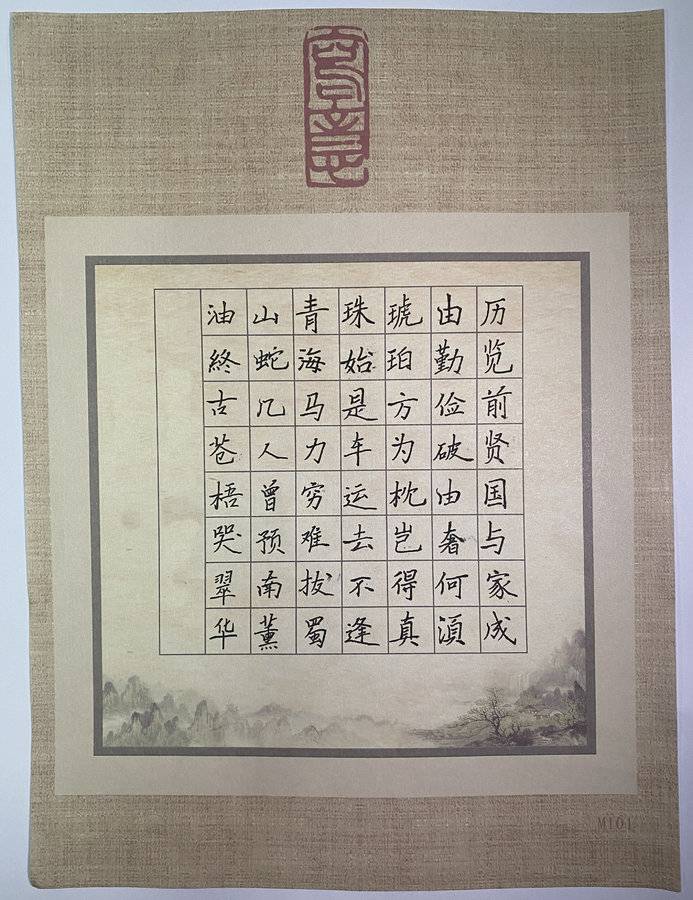 历览前贤国与家成
由勤俭破由奢何湏
琥珀方为枕岂得真
珠始是车运去不逢
青海马力穷难拔蜀
山蛇几人曾预南薰
油終古苍梧哭翠华
M101